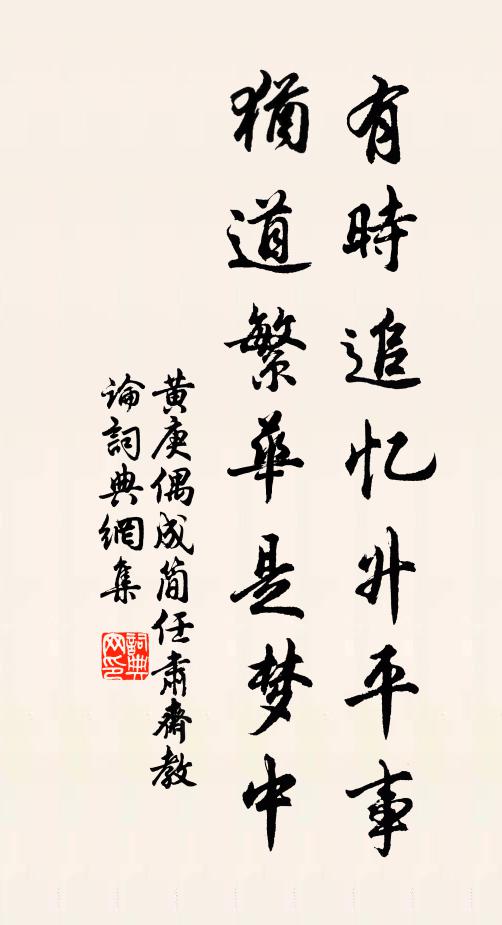 有時追忆升平事
猶道繁華是梦中
黄庚偶成简任肃齋教
论詞典網集
詞典
网印